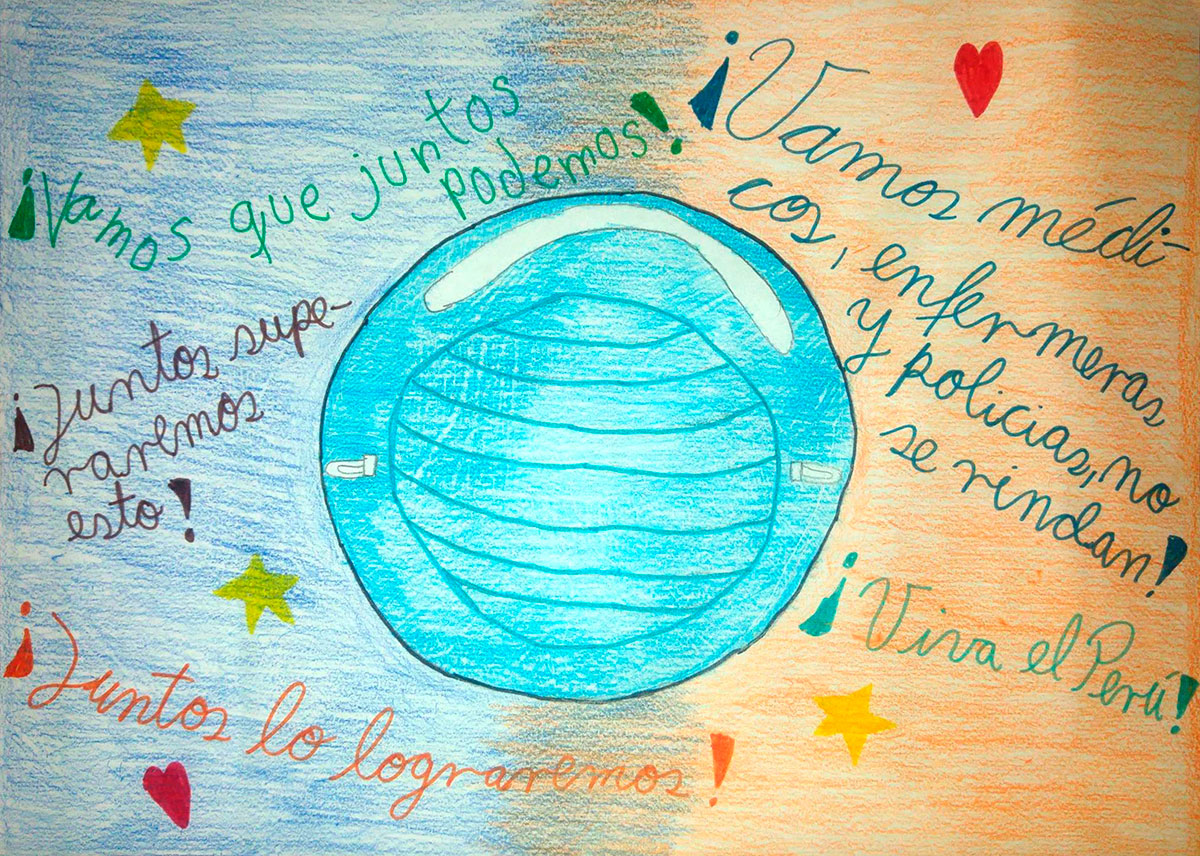 ¡Vamos que juntos
podemos!
¡Juntos supe-
raremos
esto!
¡Juntos lo lograremos!
¡Vamos médi-
cos, enfermeras
y policias, no
se rindan!
¡Viva el Perú!